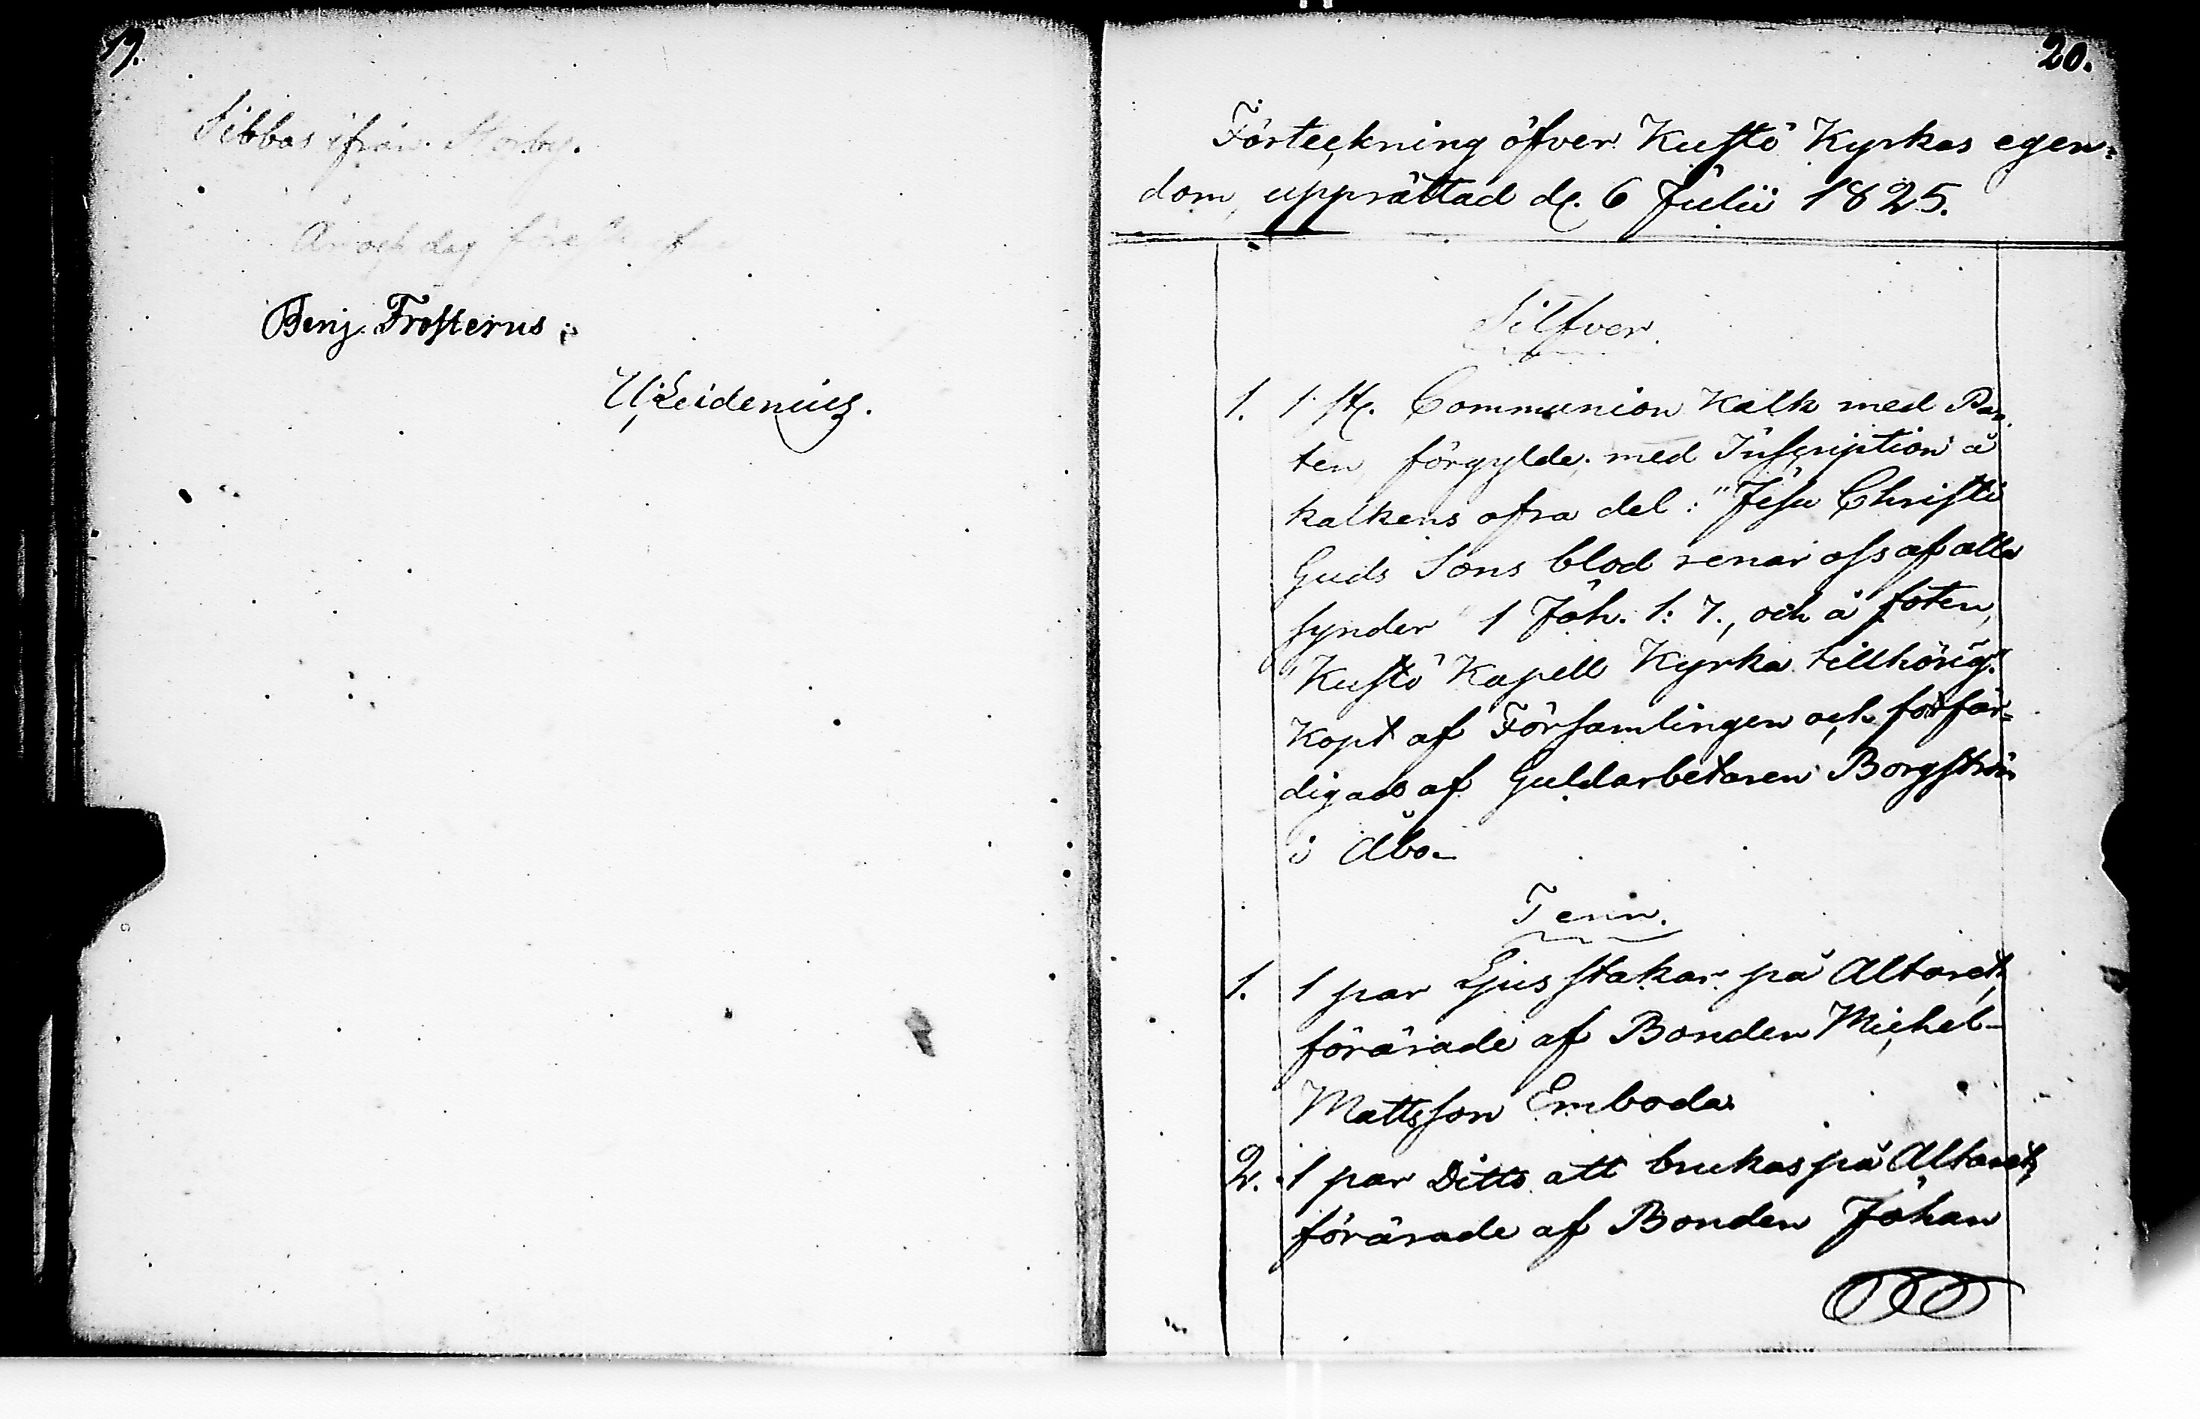 19.
Sibbas ifrån Storby.
År och dag före skref
Benj. Frosterus
U. Leidenius.
20.
Förteckning öfver Kustö Kyrkas egen=
dom, upprättad d. 6 Julii 1825.
Silfver.
1. 1 st. Communion Kalk med Pa=
ten förgylde med Inscription å
kalkens ofra del: "Jesu Christi
Guds Sons blod renar oss af alla
synder" 1 Joh. 1: 7., och å foten,
"Kustö Kapell Kyrka tillhörig."
Köpt af Församlingen och förfär=
digad af Guldarbetaren Borgström
i Åbo.
Tenn.
1. 1 par Ljusstakar på Altaret,
förärade af Bonden Michel
Mattsson Emboda
2. 1 par Ditto att brukas på Altaret,
förärade af Bonden Johan